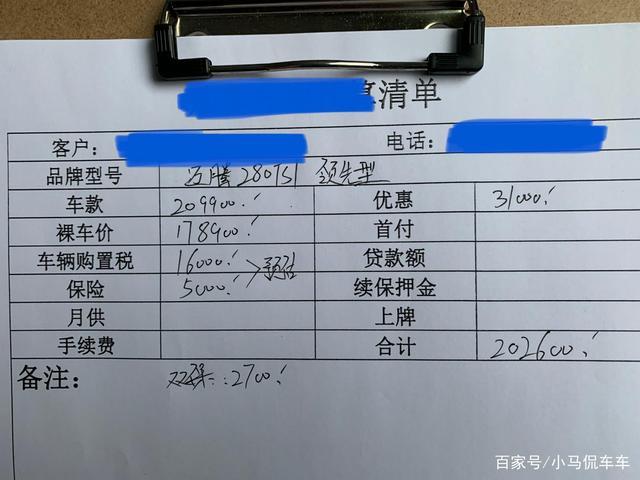 清单
客户： 电话：
品牌型号 迈腾280TSI 领先型
车款 209900 优惠 31000
裸车价 178900 首付
车辆购置税 16000 预估 贷款额
保险 5000 续保押金
月供 上牌
手续费 合计 202600
备注： 双保：2700
百家号/小马侃车车